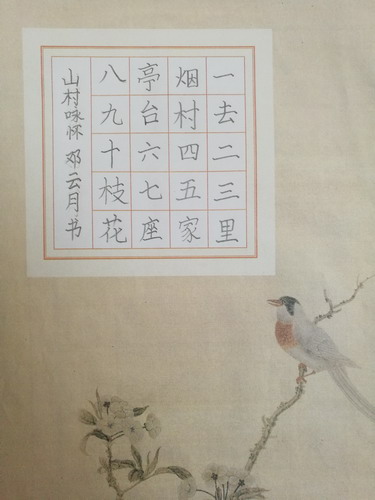 一去二三里
烟村四五家
亭台六七座
八九十枝花
山村咏怀 邓云月书